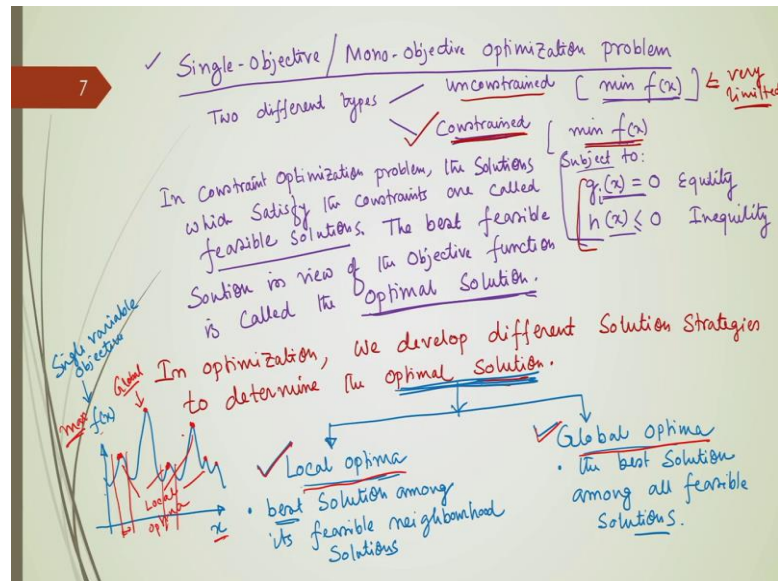 7
✓ Single-Objective / Mono-Objective optimization problem
Two different types
Unconstrained [ min f(x) ] ⇐ very limited
✓ Constrained [ min f(x)
Subject to:
gᵢ(x) = 0 Equlity
h(x) ≤ 0 Inequility
In constraint optimization problem, the solutions
which satisfy the constraints are called
feasible solutions. The best feasible
Soution in view of the objective function
is called the optimal solution.
In optimization, we develop different Solution Strategies
to determine the optimal Solution.
Single variable
objective
max f(x)
Global
Local
optima
x
✓ Local optima
• best Solution among
its feasible neighbourhood
Solutions
✓ Global optima
• the best Solution
among all feasible
Solutions.